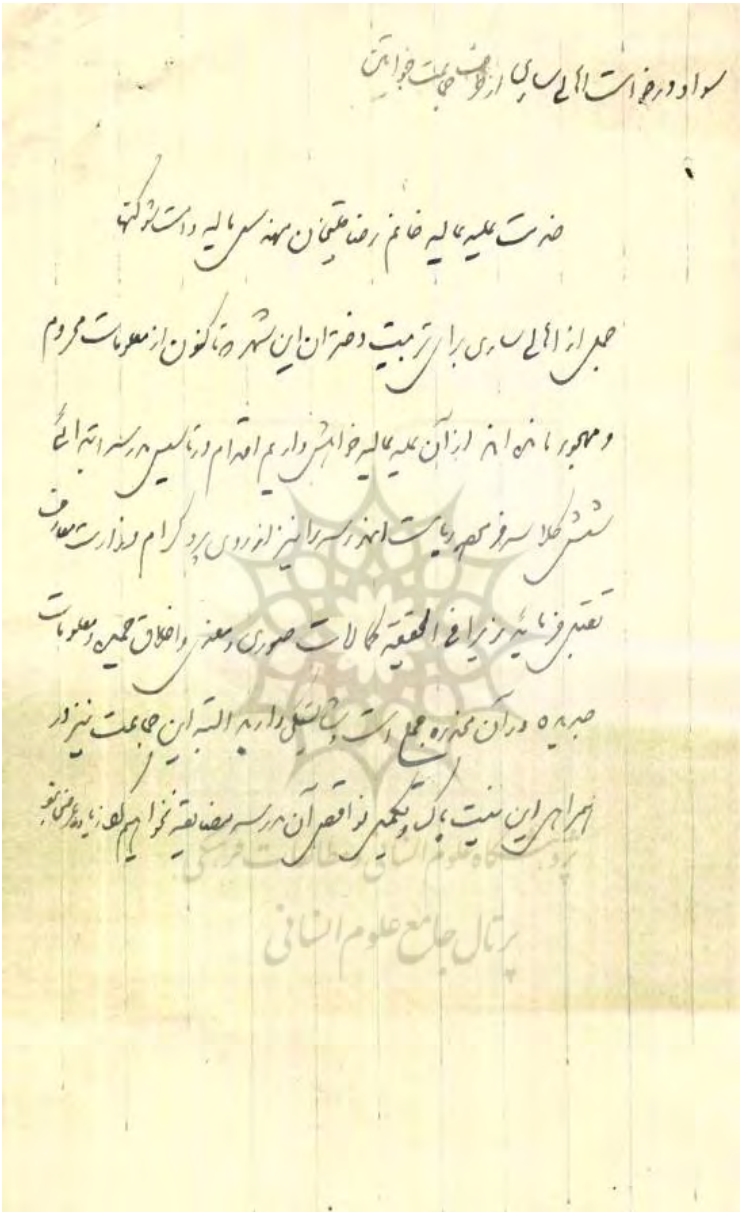 سواد درخواست اهالی ساری از طرف جماعت خواتین
خدمت علیه عالیه خانم رضا قلیخان مهندس مالیه دامت شوکتها
جمعی از اهالی ساری برای تربیت دختران این شهر که تا کنون از معلومات محروم
و مهجور مانده اند از آن علیه عالیه خواهش داریم اقدام در تاسیس مدرسه ابتدائی
شش کلاسه فرموده ریاست اینمدرسه را نیز از روی پروگرام وزارت معارف
تقبل فرمائید زیرا فی الحقیقه کمالات صوری و معنوی و اخلاق حمیده و معلومات
جدیده در آن مخدره جمع است و شایستگی دارید البته این جماعت نیز در
همراهی این نیت پاک و تکمیل نواقص آن مدرسه مضایقه نخواهیم کرد زیاده عرضی نبود
پژوهشگاه علوم انسانی و مطالعات فرهنگی
پرتال جامع علوم انسانی